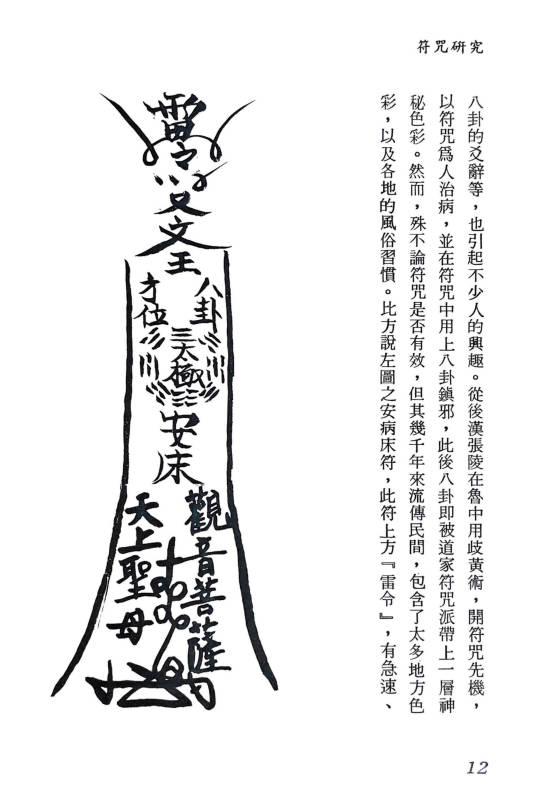 符咒研究
八卦的爻辭等，也引起不少人的興趣。從後漢張陵在魯中用歧黃術，開符咒先機，
以符咒爲人治病，並在符咒中用上八卦鎮邪，此後八卦即被道家符咒派帶上一層神
秘色彩。然而，殊不論符咒是否有效，但其幾千年來流傳民間，包含了太多地方色
彩，以及各地的風俗習慣。比方說左圖之安病床符，此符上方『雷令』，有急速、
雷令
文王
八卦
才位
太極
安床
觀音菩薩
天上聖母
12